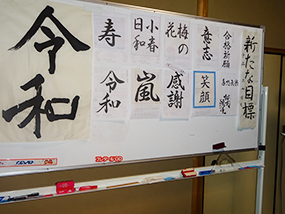 新たな目標
合格祈願
意志
笑顔
梅の花
感謝
小春日和
嵐
寿
令和
令和